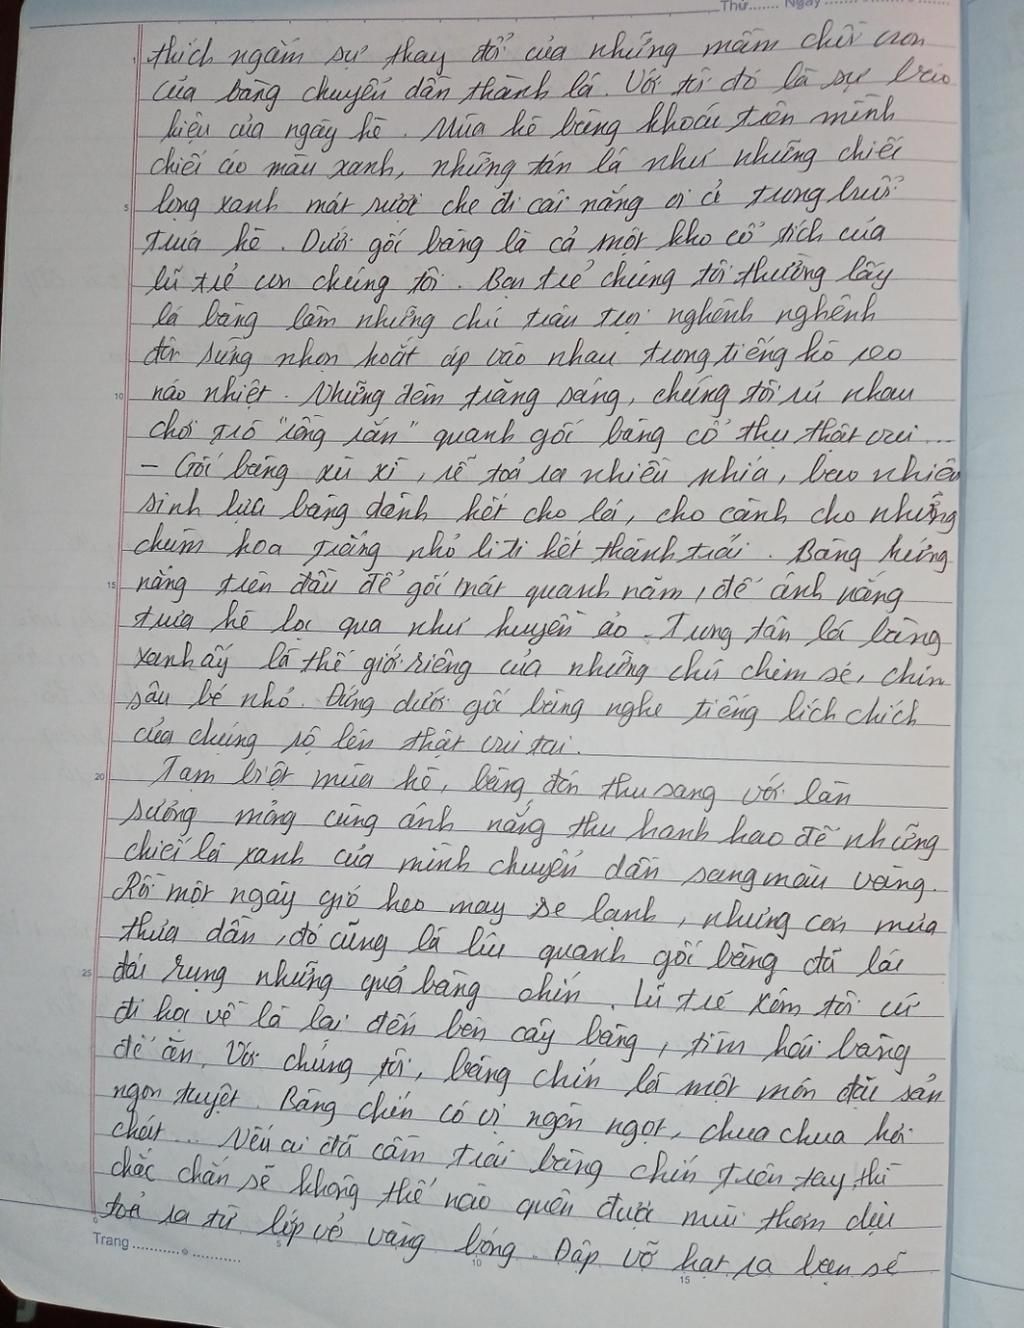 Thứ....... Ngày..........
thích ngắm sự thay đổi của những mầm chồi non
của bàng chuyển dần thành lá. Với tôi đó là sự báo
hiệu của ngày hè. Mùa hè bàng khoác trên mình
chiếc áo màu xanh, những tán lá như những chiếc
lọng xanh mát rượi che đi cái nắng oi ả trong buổi
trưa hè. Dưới gốc bàng là cả một kho cổ tích của
lũ trẻ con chúng tôi. Bọn trẻ chúng tôi thường lấy
lá bàng làm những chú trâu trọi nghênh nghênh
đôi sừng nhọn hoắt áp vào nhau trong tiếng hò reo
náo nhiệt. Những đêm trăng sáng, chúng tôi rủ nhau
chơi trò "rồng rắn" quanh gốc bàng cổ thụ thật vui...
- Gốc bàng xù xì, rễ toả ra nhiều phía, bao nhiêu
sinh lực bàng dành hết cho lá, cho cành cho những
chùm hoa trắng nhỏ li ti kết thành trái. Bàng hứng
nắng trên đầu để gốc mát quanh năm, để ánh nắng
trưa hè lọc qua như huyền ảo. Trong tán lá bàng
xanh ấy là thế giới riêng của những chú chim sẻ, chim
sâu bé nhỏ. Đứng dưới gốc bàng nghe tiếng lích chích
của chúng rộ lên thật vui tai.
Tạm biệt mùa hè, bàng đón thu sang với làn
sương mỏng cùng ánh nắng thu hanh hao để những
chiếc lá xanh của mình chuyển dần sang màu vàng.
Rồi một ngày gió heo may se lạnh, những cơn mưa
thưa dần, đó cũng là lúc quanh gốc bàng đã lác
đác rụng những quả bàng chín. Lũ trẻ xóm tôi cứ
đi học về là lại đến bên cây bàng, tìm hái bàng
để ăn. Với chúng tôi, bàng chín là một món đặc sản
ngon tuyệt. Bàng chín có vị ngòn ngọt, chua chua hơi
chát... Nếu ai đã cầm trái bàng chín trên tay thì
chắc chắn sẽ không thể nào quên được mùi thơm dịu
toả ra từ lớp vỏ vàng bóng. Đập vỡ hạt ra bạn sẽ
Trang....................